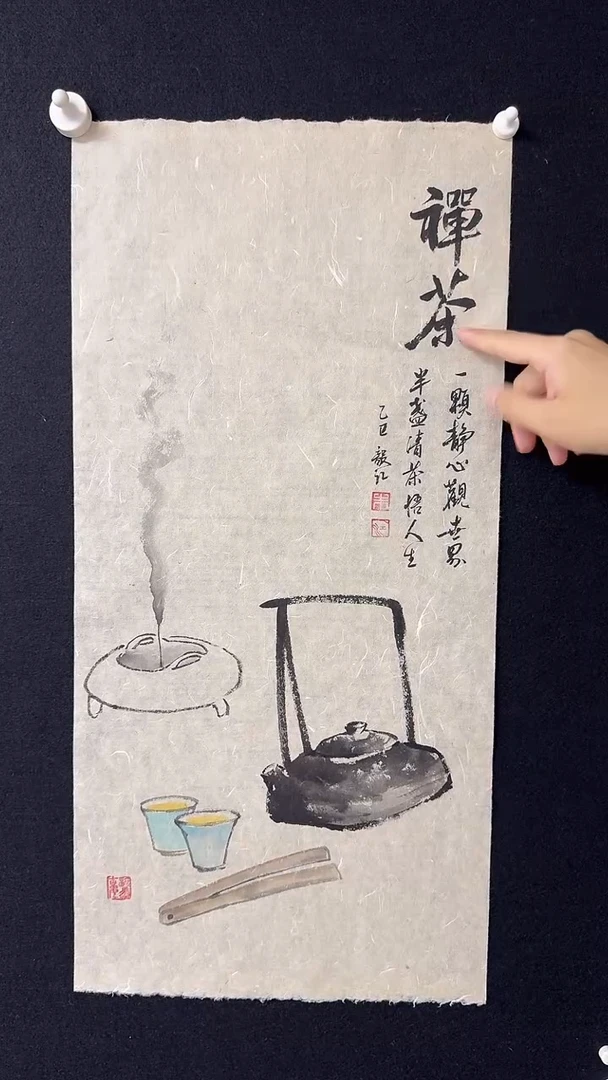 禪茶
一顆静心觀世界
半盞清茶悟人生
乙巳 毅江